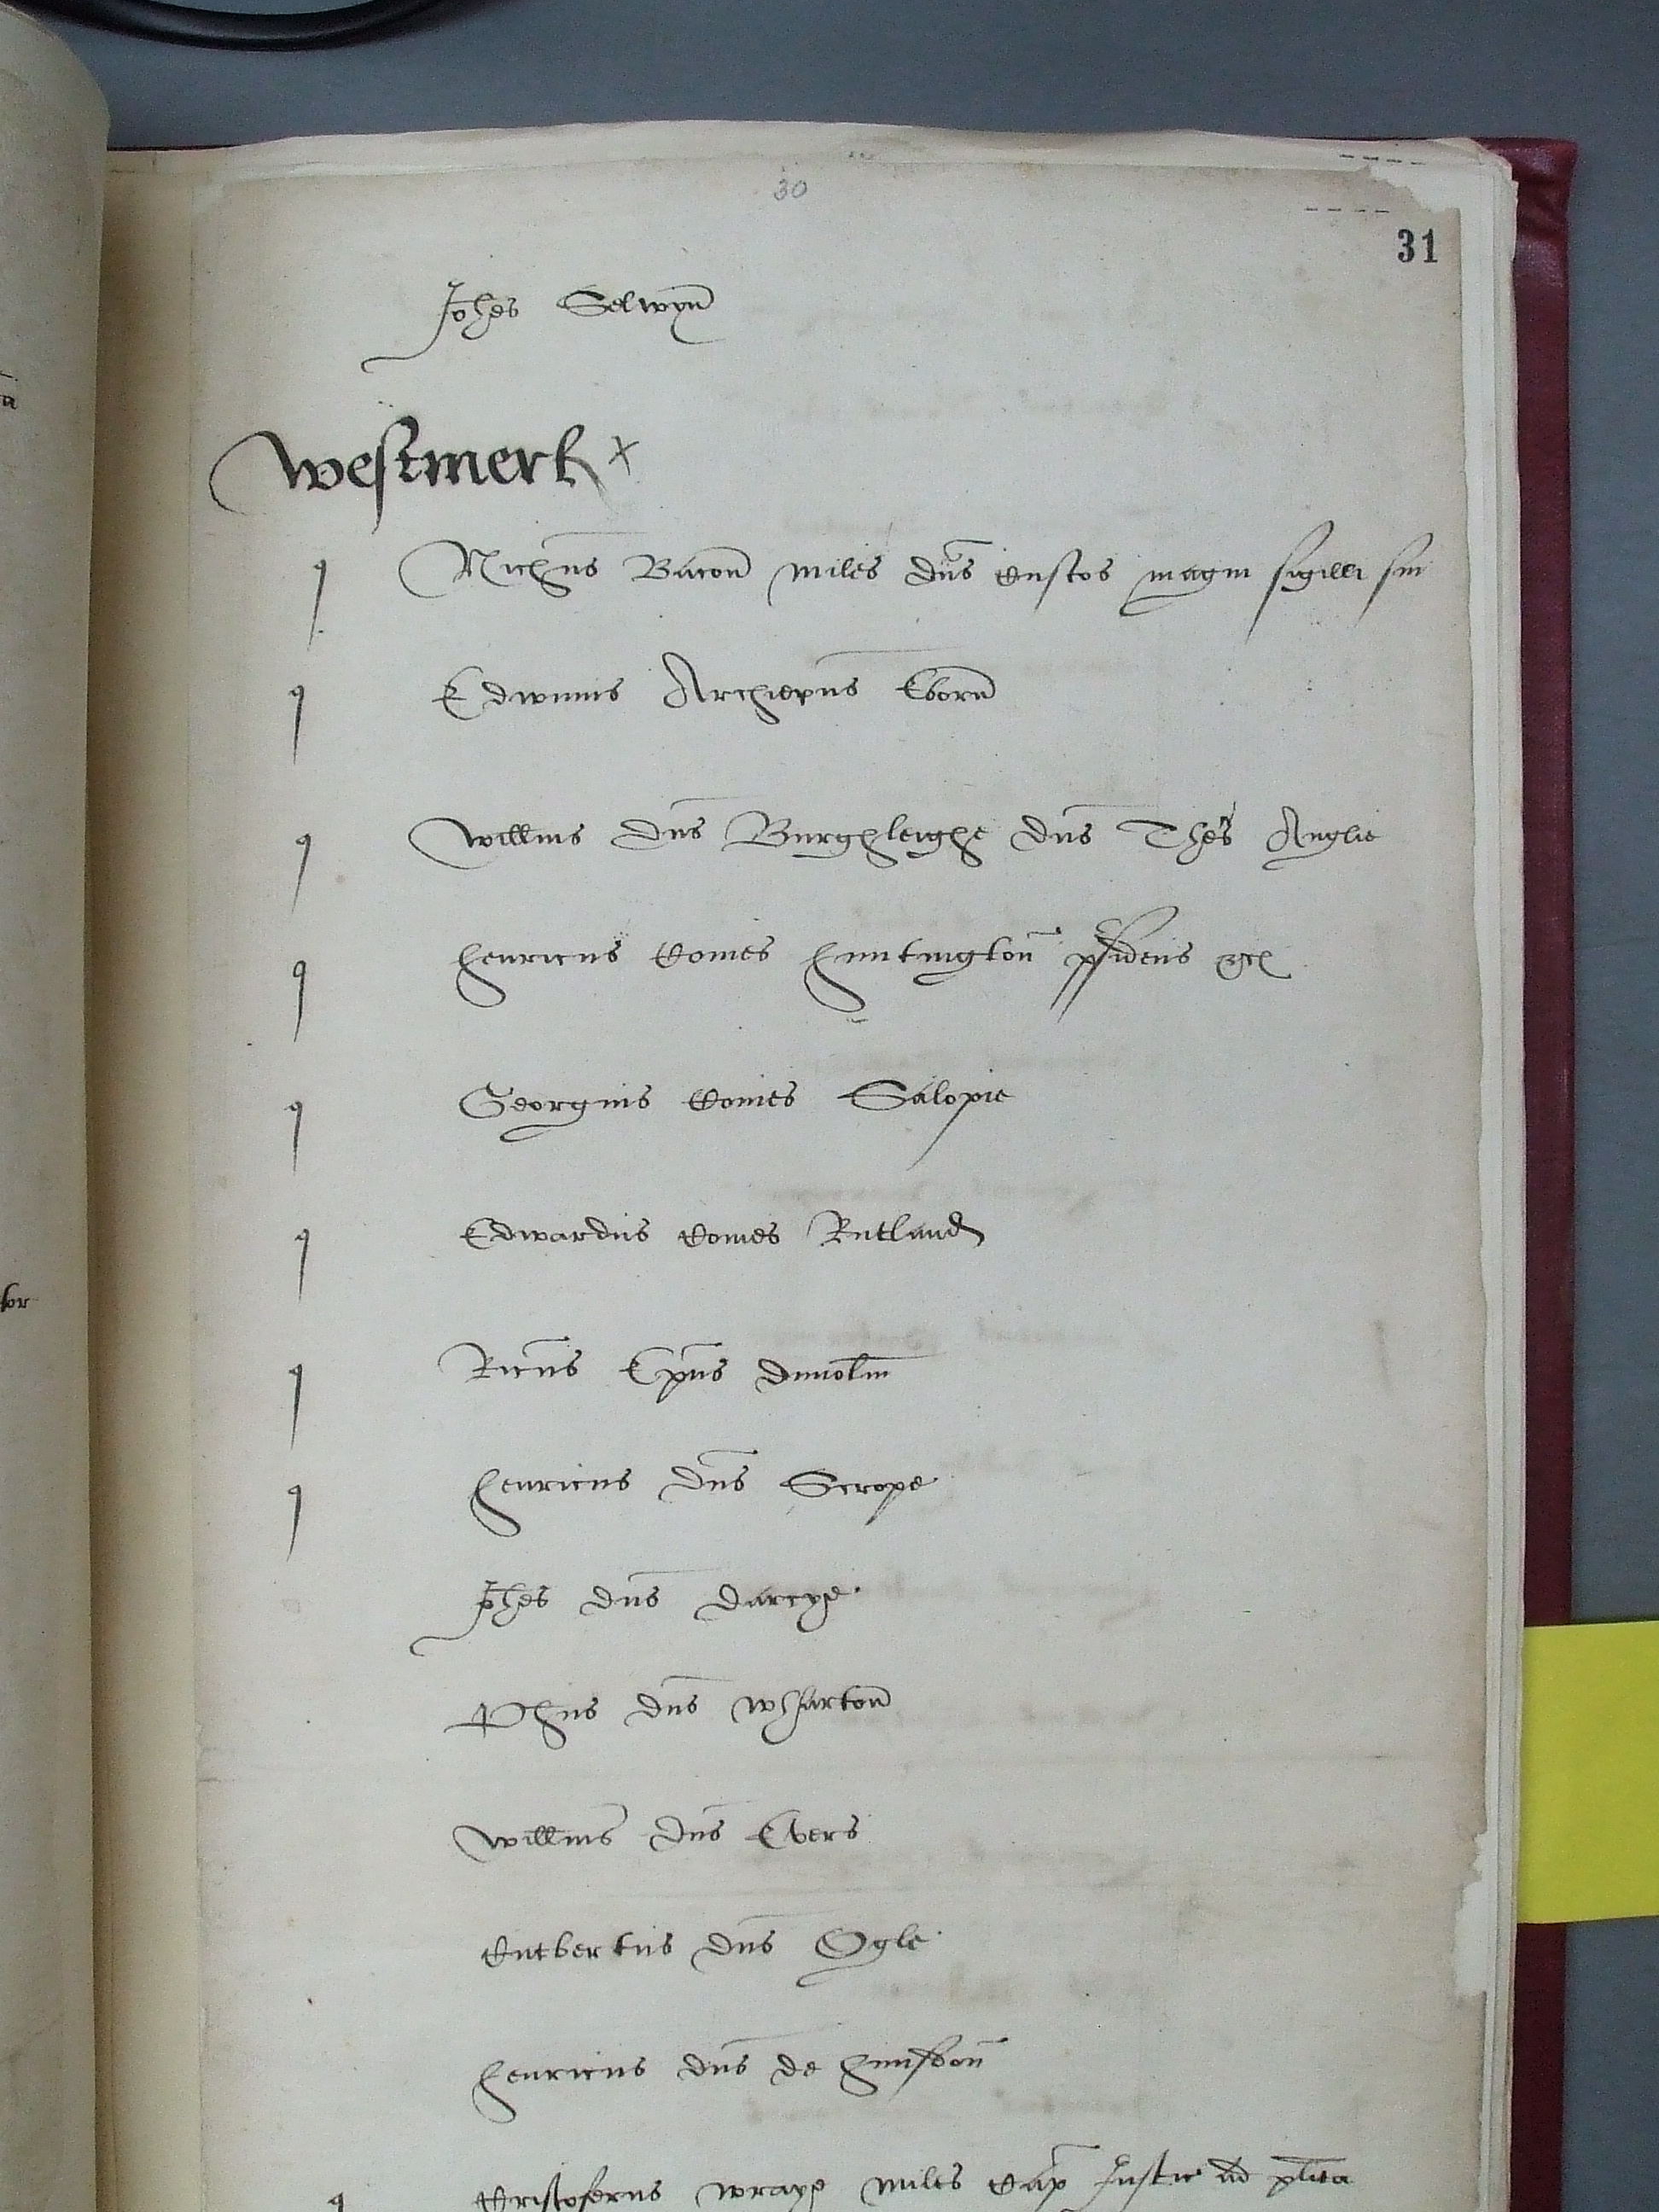 30
31
Johes Selwyn
Westmerl x
q Nichus Bacon miles dns Custos magni sigilli sui
q Edwinus Archiepus Eborn
q Willms dns Burghleighe dns Thes Anglie
q Henricus Comes Huntington psidens &c
q Georgius Comes Salopie
q Edwardus Comes Rutland
q Ricus Epus Dunolm
q Henricus dns Scrope
Johes dns Darcye
Phus dns Wharton
Willms dns Evers
Cutbertus dns Ogle
Henricus dns de Hunsdon
q Cristoferus Wraye miles Cap Justic ad plita